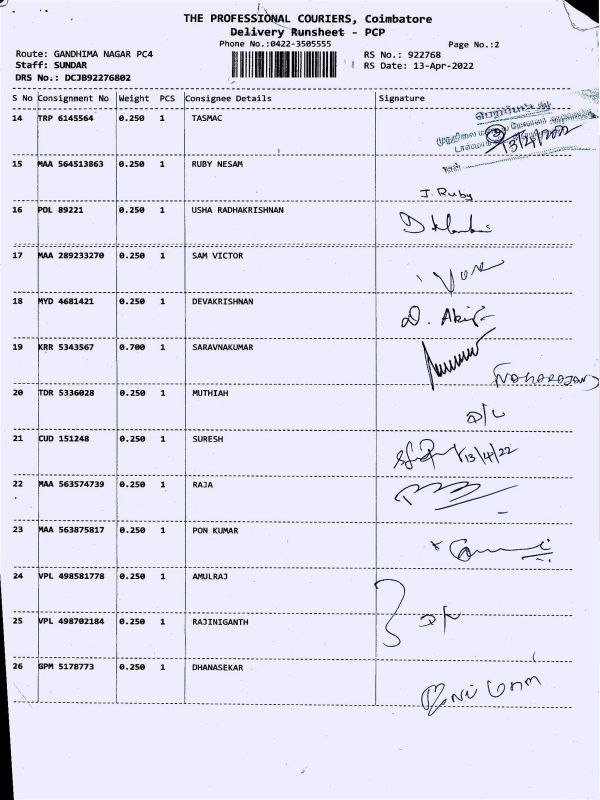 THE PROFESSIONAL COURIERS, Coimbatore
Delivery Runsheet - PCP
Phone No.:0422-3505555 Page No.:2
Route: GANDHIMA NAGAR PC4 RS No.: 922768
Staff: SUNDAR RS Date: 13-Apr-2022
DRS No.: DCJB92276802
S No Consignment No Weight PCS Consignee Details Signature
14 TRP 6145564 0.250 1 TASMAC
13/4/2022
15 MAA 564513863 0.250 1 RUBY NESAM
J. Ruby
16 POL 89221 0.250 1 USHA RADHAKRISHNAN
17 MAA 289233270 0.250 1 SAM VICTOR
18 MYD 4681421 0.250 1 DEVAKRISHNAN
19 KRR 5343567 0.700 1 SARAVNAKUMAR
20 TDR 5336028 0.250 1 MUTHIAH
21 CUD 151248 0.250 1 SURESH
13/4/22
22 MAA 563574739 0.250 1 RAJA
23 MAA 563875817 0.250 1 PON KUMAR
24 VPL 498581778 0.250 1 AMULRAJ
25 VPL 498702184 0.250 1 RAJINIGANTH
26 GPM 5178773 0.250 1 DHANASEKAR